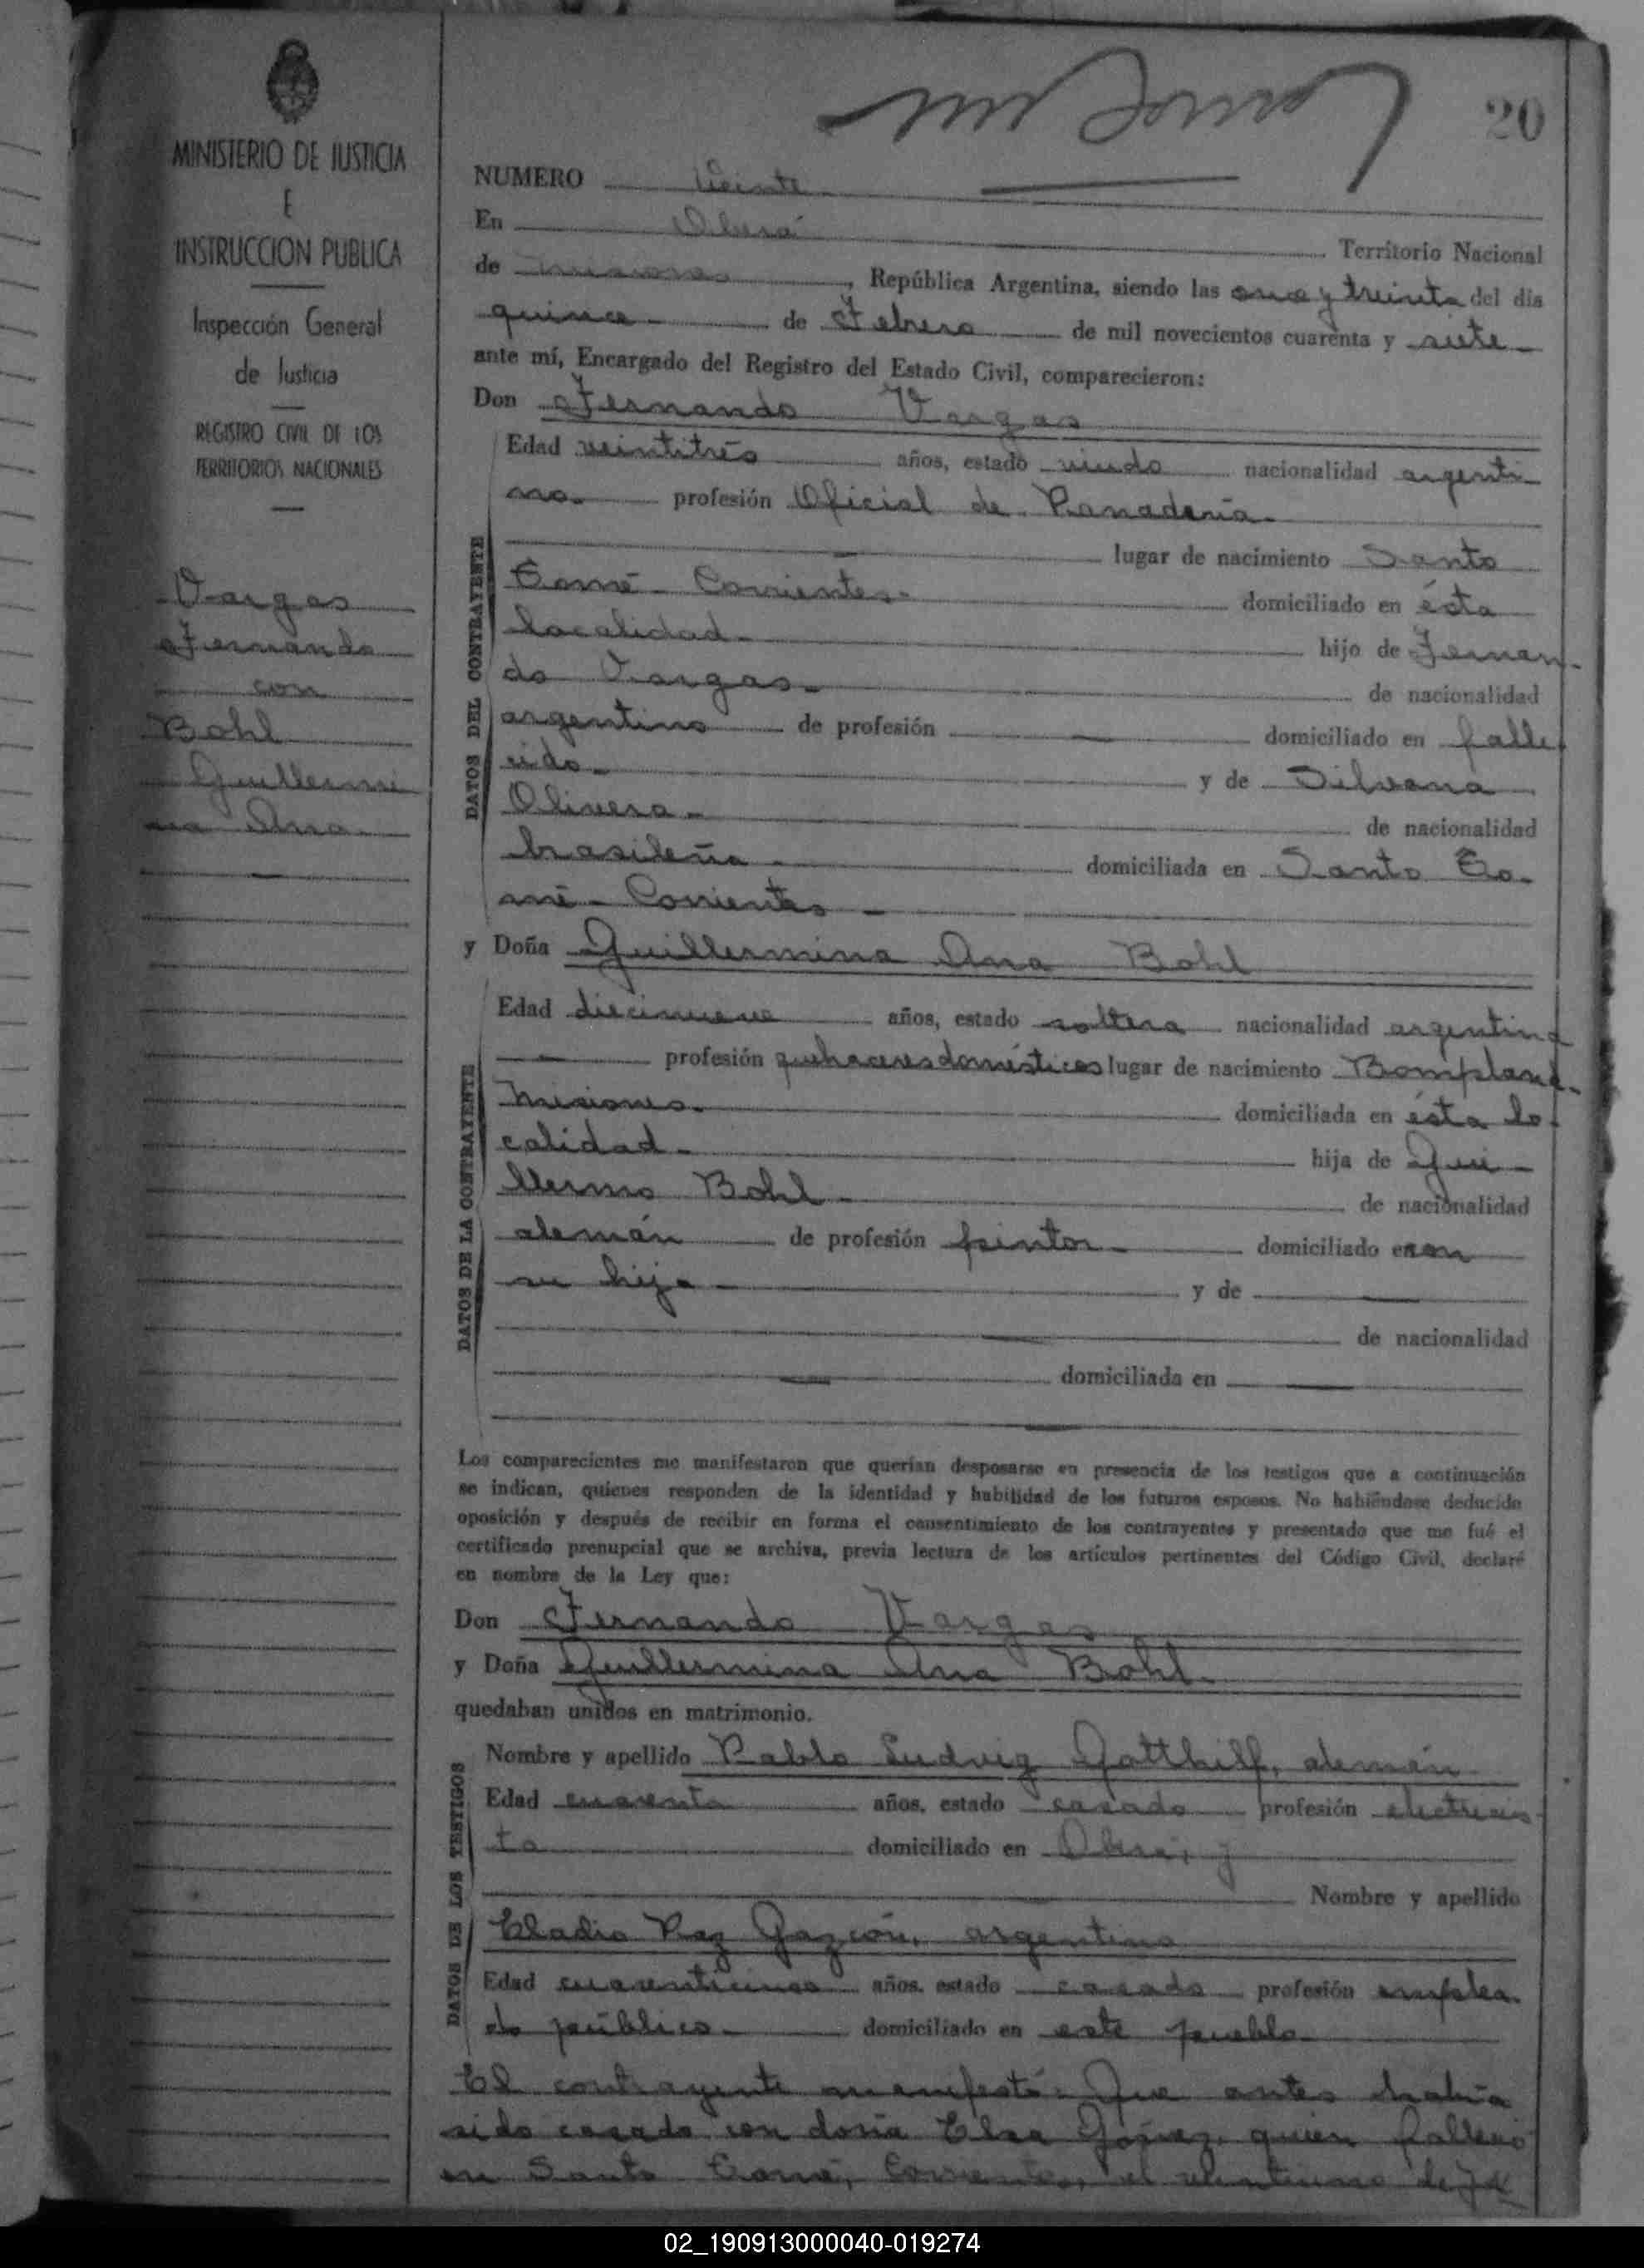 20
MINISTERIO DE JUSTICIA
E
INSTRUCCION PUBLICA
Inspección General
de Justicia
REGISTRO CIVIL DE LOS
TERRITORIOS NACIONALES
Vargas
Fernando
con
Bohl
Guillermi
na Ana.
NUMERO Veinte
En Oberá Territorio Nacional
de Misiones, República Argentina, siendo las once y treinta del día
quince de Febrero de mil novecientos cuarenta y siete
ante mí, Encargado del Registro del Estado Civil, comparecieron:
Don Fernando Vargas
DATOS DEL CONTRAYENTE
Edad veintitrés años, estado viudo nacionalidad argenti
no. profesión Oficial de Panadería.
lugar de nacimiento Santo
Tomé - Corrientes. domiciliado en ésta
localidad. hijo de Fernan-
do Vargas. de nacionalidad
argentino de profesión domiciliado en falle
cido. y de Silvana
Olivera. de nacionalidad
brasileña. domiciliada en Santo To-
mé - Corrientes
y Doña Guillermina Ana Bohl
DATOS DE LA CONTRAYENTE
Edad diecinueve años, estado soltera nacionalidad argentina
profesión quehaceres domésticos lugar de nacimiento Bompland.
Misiones. domiciliada en ésta lo
calidad. hija de Gui
llermo Bohl. de nacionalidad
alemán de profesión pintor. domiciliado en con
su hija y de
de nacionalidad
domiciliada en
Los comparecientes me manifestaron que querían desposarse en presencia de los testigos que a continuación
se indican, quienes responden de la identidad y habilidad de los futuros esposos. No habiéndose deducido
oposición y después de recibir en forma el consentimiento de los contrayentes y presentado que me fué el
certificado prenupcial que se archiva, previa lectura de los artículos pertinentes del Código Civil, declaré
en nombre de la Ley que:
Don Fernando Vargas
y Doña Guillermina Ana Bohl.
quedaban unidos en matrimonio.
DATOS DE LOS TESTIGOS
Nombre y apellido Pablo Ludvig Gotthilf, alemán
Edad cuarenta años, estado casado profesión electricis
ta domiciliado en Oberá; y
Nombre y apellido
Eladio Paz Gazcón, argentino
Edad cuarenticinco años, estado casado profesión emplea
do público. domiciliado en este pueblo
El contrayente manifestó: Que antes había
sido casado con doña Elsa quien falleció
en Santo Tomé, Corrientes, el de
02_190913000040-019274